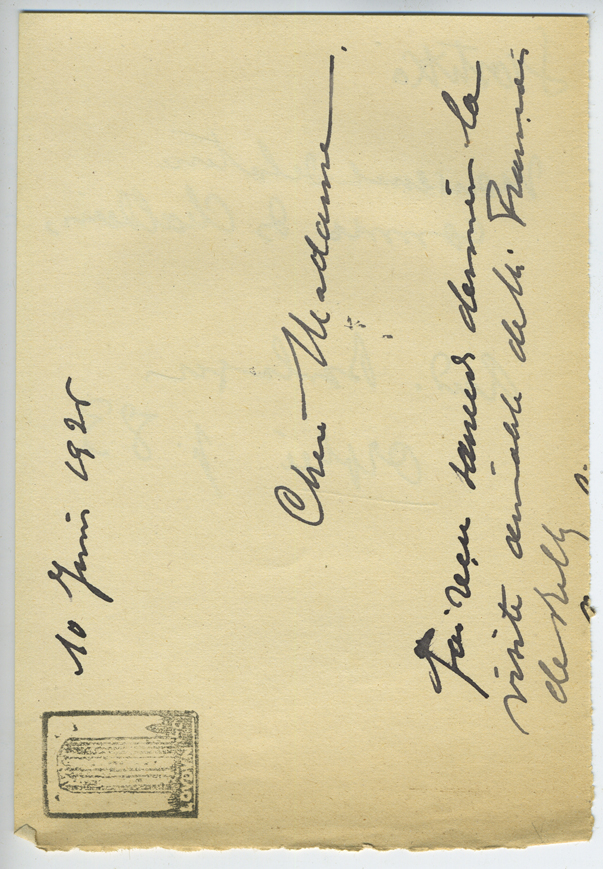 10 Juin 1925
Chère Madame.
J'ai reçu samedi dernier la
visite aimable de M. Francis
de